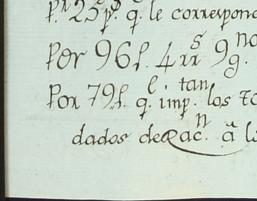 p.r 25 p.s q. le correspond
Por 96 l. 4 rr.s 9 g.no
Por 79 l. q.e imp.tan los
dados de rac.n a l